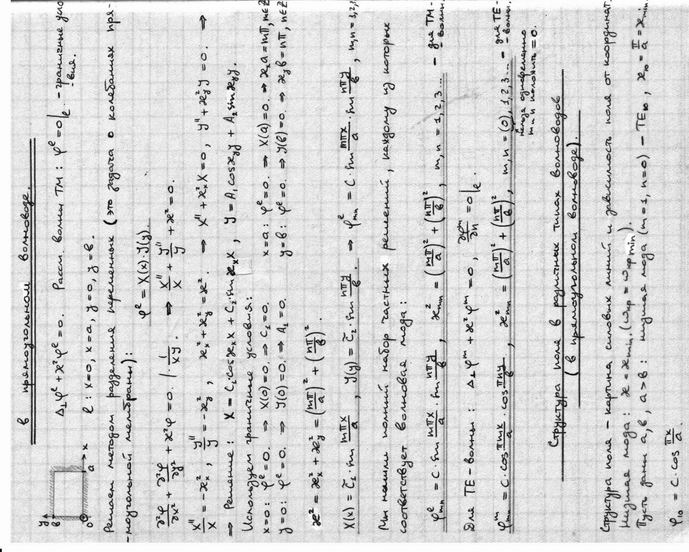 в прямоугольном волноводе.
Δ⊥φᵉ + ϰ²φᵉ = 0. Рассм. волны TM: φᵉ = 0|ℓ. - граничные усло-
-вия.
ℓ: x=0, x=a, y=0, y=в.
y в 0 a x
Решаем методом разделения переменных (это задача о колебаниях пря-
-моугольной мембраны):
φᵉ = X(x)·Y(y)
∂²φ/∂x² + ∂²φ/∂y² + ϰ²φ = 0. | · 1/XY. ⇒ X''/X + Y''/Y + ϰ² = 0.
X''/X = -ϰₓ², Y''/Y = -ϰᵧ², ϰₓ² + ϰᵧ² = ϰ². ⇒ X'' + ϰₓ²X = 0, Y'' + ϰᵧ²Y = 0. ⇒
⇒ Решение: X = C₁cosϰₓx + C₂sinϰₓx, Y = A₁cosϰᵧy + A₂sinϰᵧy.
Используем граничные условия:
x=0: φᵉ=0. ⇒ X(0)=0. ⇒ C₁=0. x=a: φᵉ=0. ⇒ X(a)=0. ⇒ ϰₓa=mπ, m∈Z
y=0: φᵉ=0. ⇒ Y(0)=0. ⇒ A₁=0. y=в: φᵉ=0. ⇒ Y(в)=0. ⇒ ϰᵧв=nπ, n∈Z
ϰ² = ϰₓ² + ϰᵧ² = (mπ/a)² + (nπ/в)².
X(x) = C̃₂·sin mπx/a, Y(y) = C̃₂·sin nπy/в. ⇒ φᵉₘₙ = C·sin mπx/a · sin nπy/в, m,n=1,2,3..
Мы нашли полный набор частных решений, каждому из которых
соответствует волновая мода:
φᵉₘₙ = C·sin mπx/a · sin nπy/в, ϰ²ₘₙ = (mπ/a)² + (nπ/в)², m,n = 1,2,3... - для TM-волны.
Для TE-волны: Δ⊥φᵐ + ϰ²φᵐ = 0, ∂φᵐ/∂n = 0|ℓ.
φᵐₘₙ = C·cos πmx/a · cos πny/в, ϰ²ₘₙ = (mπ/a)² + (nπ/в)², m,n = (0),1,2,3... - для TE-волны.
нельзя одновременно m и n положить = 0.
Структура поля в различных типах волноводов
(в прямоугольном волноводе).
Структура поля - картина силовых линий и зависимость поля от координат
Низшая мода: ϰ = ϰmin, (ωкр = ωкр min).
Пусть даны a,в, a>в: низшая мода (m=1, n=0) - TE₁₀, ϰ₁₀ = π/a = ϰmin.
φ₁₀ = C·cos πx/a